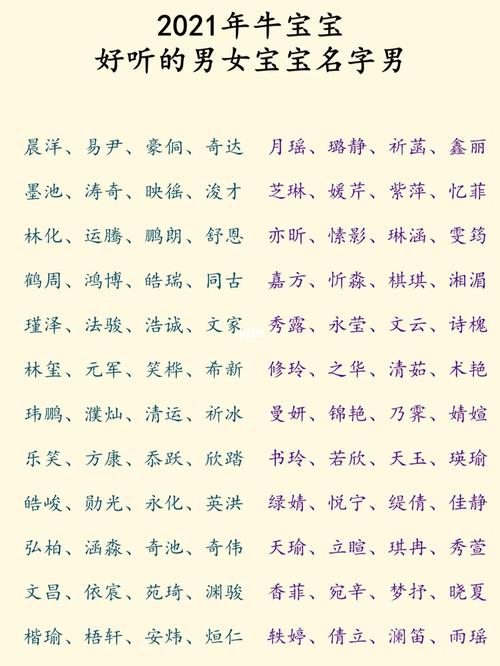 2021年牛宝宝
好听的男女宝宝名字男
晨洋、易尹、豪侗、奇达 月瑶、璐静、祈菡、鑫丽
墨池、涛奇、映徭、浚才 芝琳、媛芹、紫萍、忆菲
林化、运腾、鹏朗、舒恩 亦昕、愫影、琳涵、雯筠
鹤周、鸿博、皓瑞、同古 嘉方、忻淼、棋琪、湘湄
瑾泽、法骏、浩诚、文家 秀露、永莹、文云、诗槐
林玺、元军、笑桦、希新 修玲、之华、清茹、术艳
玮鹏、濮灿、清运、祈冰 曼妍、锦艳、乃霁、婧媗
乐笑、方康、忝跃、欣踏 书玲、若欣、天玉、瑛瑜
皓峻、勋光、永化、英洪 绿婧、悦宁、缇倩、佳静
弘柏、涵淼、奇池、奇伟 天瑜、立暄、琪冉、秀萱
文昌、依宸、苑琦、渊骏 香菲、宛辛、梦抒、晓夏
楷瑜、梧轩、安炜、烜仁 轶婷、倩立、澜笛、雨瑶